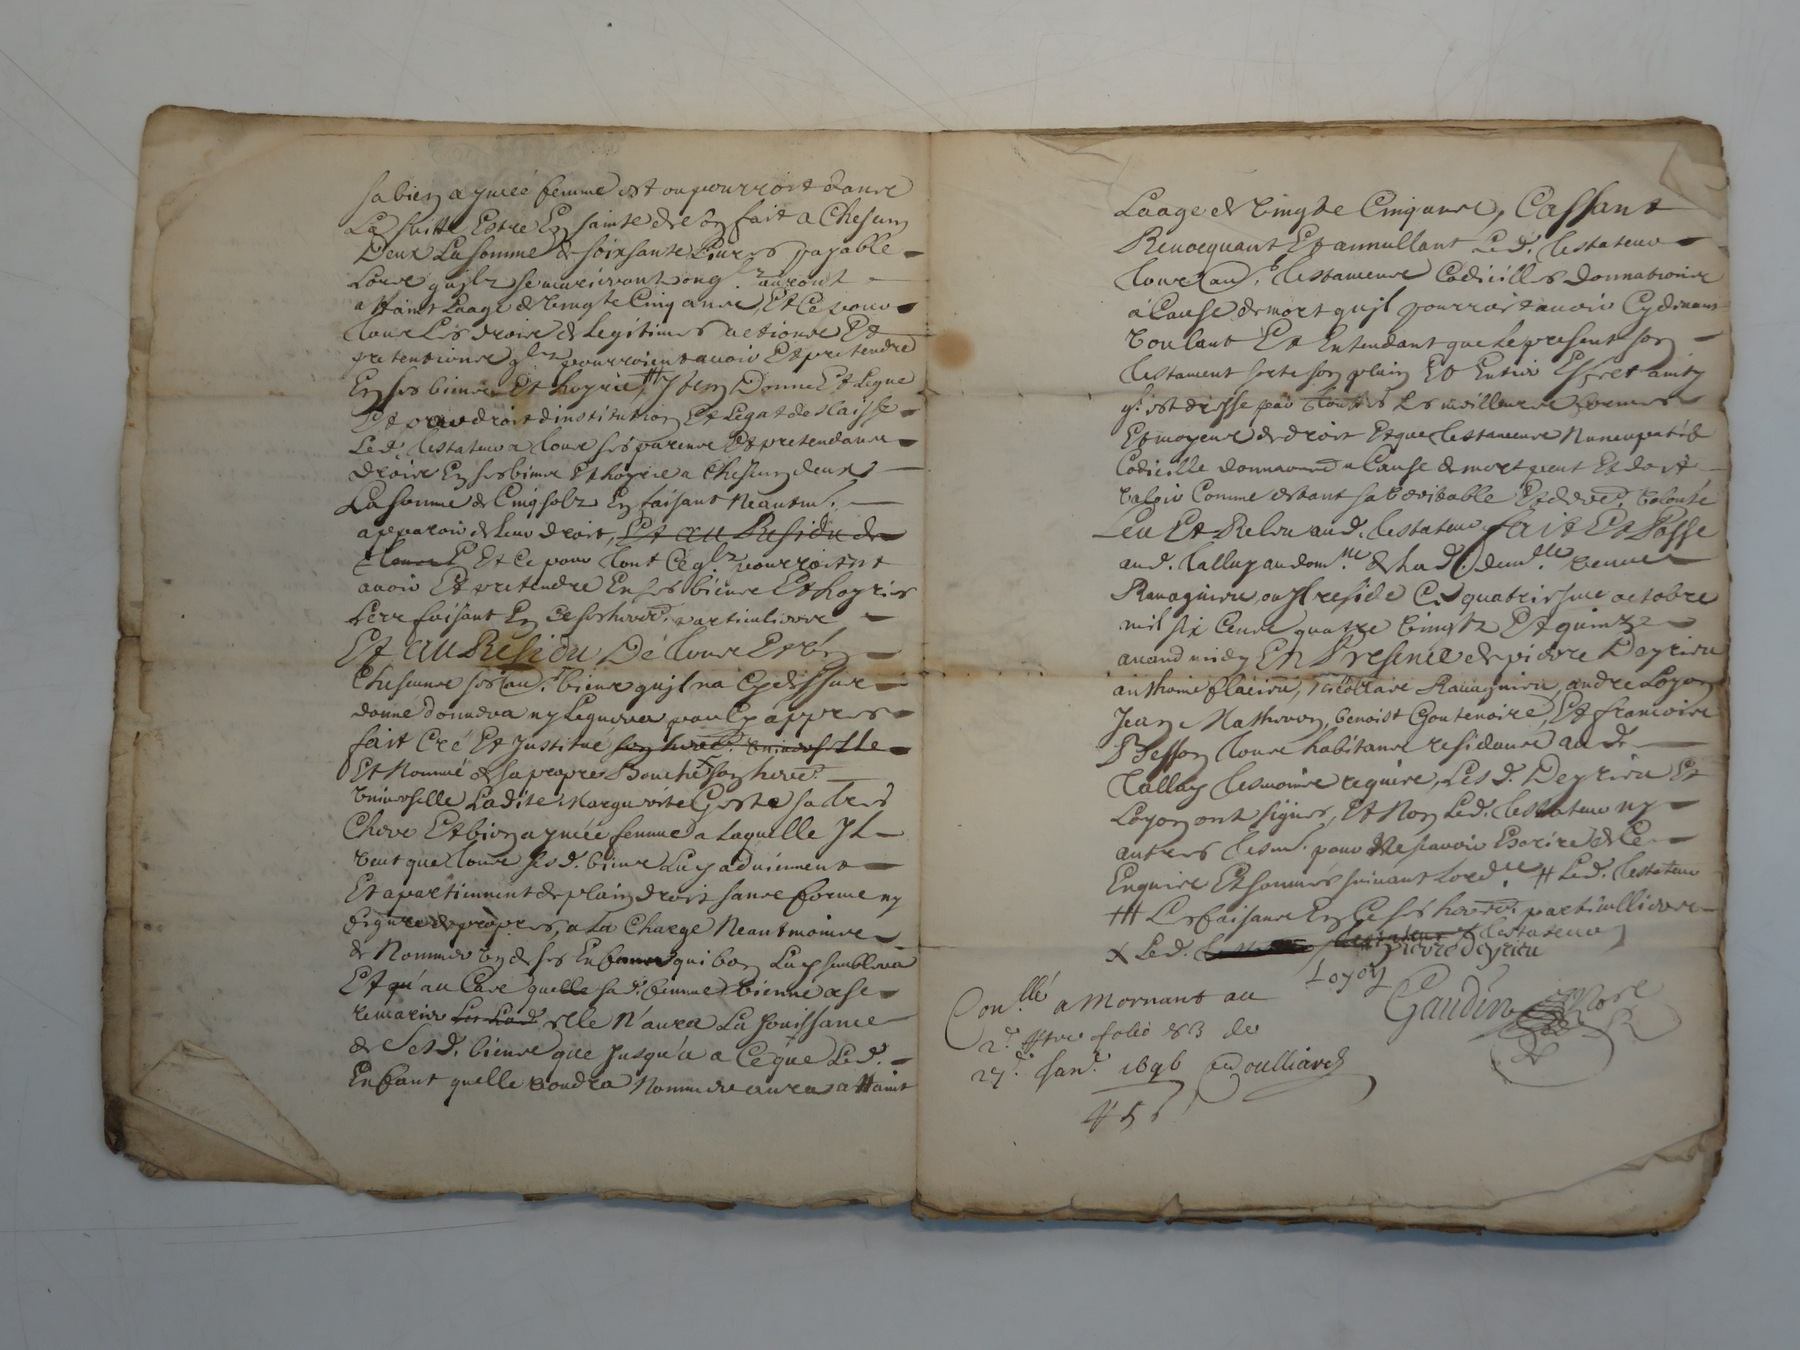 sa bien aymée femme est ou pourroit dans
La suitte Estre Enseinte & en fait a Chescun
Deux La somme de soixsante Livres payable
Lors quilz se marieront ou quilz auront
attaint Laage de vingt Cinq ans, Et Ce pour
tous Les droits & Legitimes actions Et
pretentions qlz pourroient avoir Et pretendre
En ses biens Et hoyrie, # Item Donne Et Legue
Et par droit d'institution Et Legat delaisse
Led. testateur a tous ses parens Et pretendans
droits En ses biens Et hoyrie a Chescun deux
La somme de Cinq solz En faisant Neantm.
apparoir de leur droit, Et au Residu de
Et Ce pour tout Ce qlz pourroient
avoir Et pretendre En ses biens Et hoyries
Les faisant En Ce ses hered. particuliers
Et au Residu De tous Et Un
Chescuns ses au. biens quil na Cy dessus
donné donnera ny Leguera par Cy appres
fait Cré Et Institué son hered. universelle
Et Nommé de sa propre Bouche x son hered.
universelle Ladite Marguerite Goste sa tres
Chere Et bien aymée femme a Laquelle Il
veut que tous sesd. biens Luy adviennent
Et apartiennent de plain droit sans forme ny
figure de proces, a La Charge Neantmoins
de Nommer un de ses Enfans qui bon Luy semblera
Et qu'au Cas quelle sad. femme vienne a se
remarier elle N'aura La Jouissance
de Sesd. biens que Jusqu'a a Ce que Led.
Enfant quelle voudra Nommer aura attaint
Laage de vingt Cinq ans, Cassant
Revocquant Et annullant Led. testateur
tous au. testamens Codicilles donnations
a Cause de mort quil pourroit avoir Cy devant
voulant Et Entendant que Le present son
testament sorte son plain Et Entier Effet ainsy
ql est dressé par toutes Les meilleures formes
Et moyens de droit Et que testament Nuncupatif
Codicille donnation a Cause de mort peut Et doit
valoir Comme estant sa veritable Et derre. volonté
Leu Et Releu aud. testateur fait Et Passé
aud. Talluy au dom.ne de Lad. dem.lle veuve
Ravagniere, ou Il reside Ce quatriesme octobre
mil six Cens quatre vingtz Et quinze
avand midy En Presence de pierre Deyrieu
anthoine flacieu, Ravagnieu, andre Loyon
Jean Matheron, benoist Goutenoire, Et francois
Besson tous habitans residans aud.
Tallay tesmoins requis, Les d. Deyrieu Et
Loyon ont signés, Et Non Led. testateur ny
autres tesm. pour Ne scavoir Escrire de Ce
Enquis Et sommés suivant Lord.ce # Led. testateur
+++ Les faisant En Ce ses hered. particulliers
x Led. testateur
pierre deyrieu
Loyon
Gaudin Nore R
Con.llé a Mornant au
2.e #tre folio 83 le
27.e Jan.r 1696 Doulliard
# 5 s